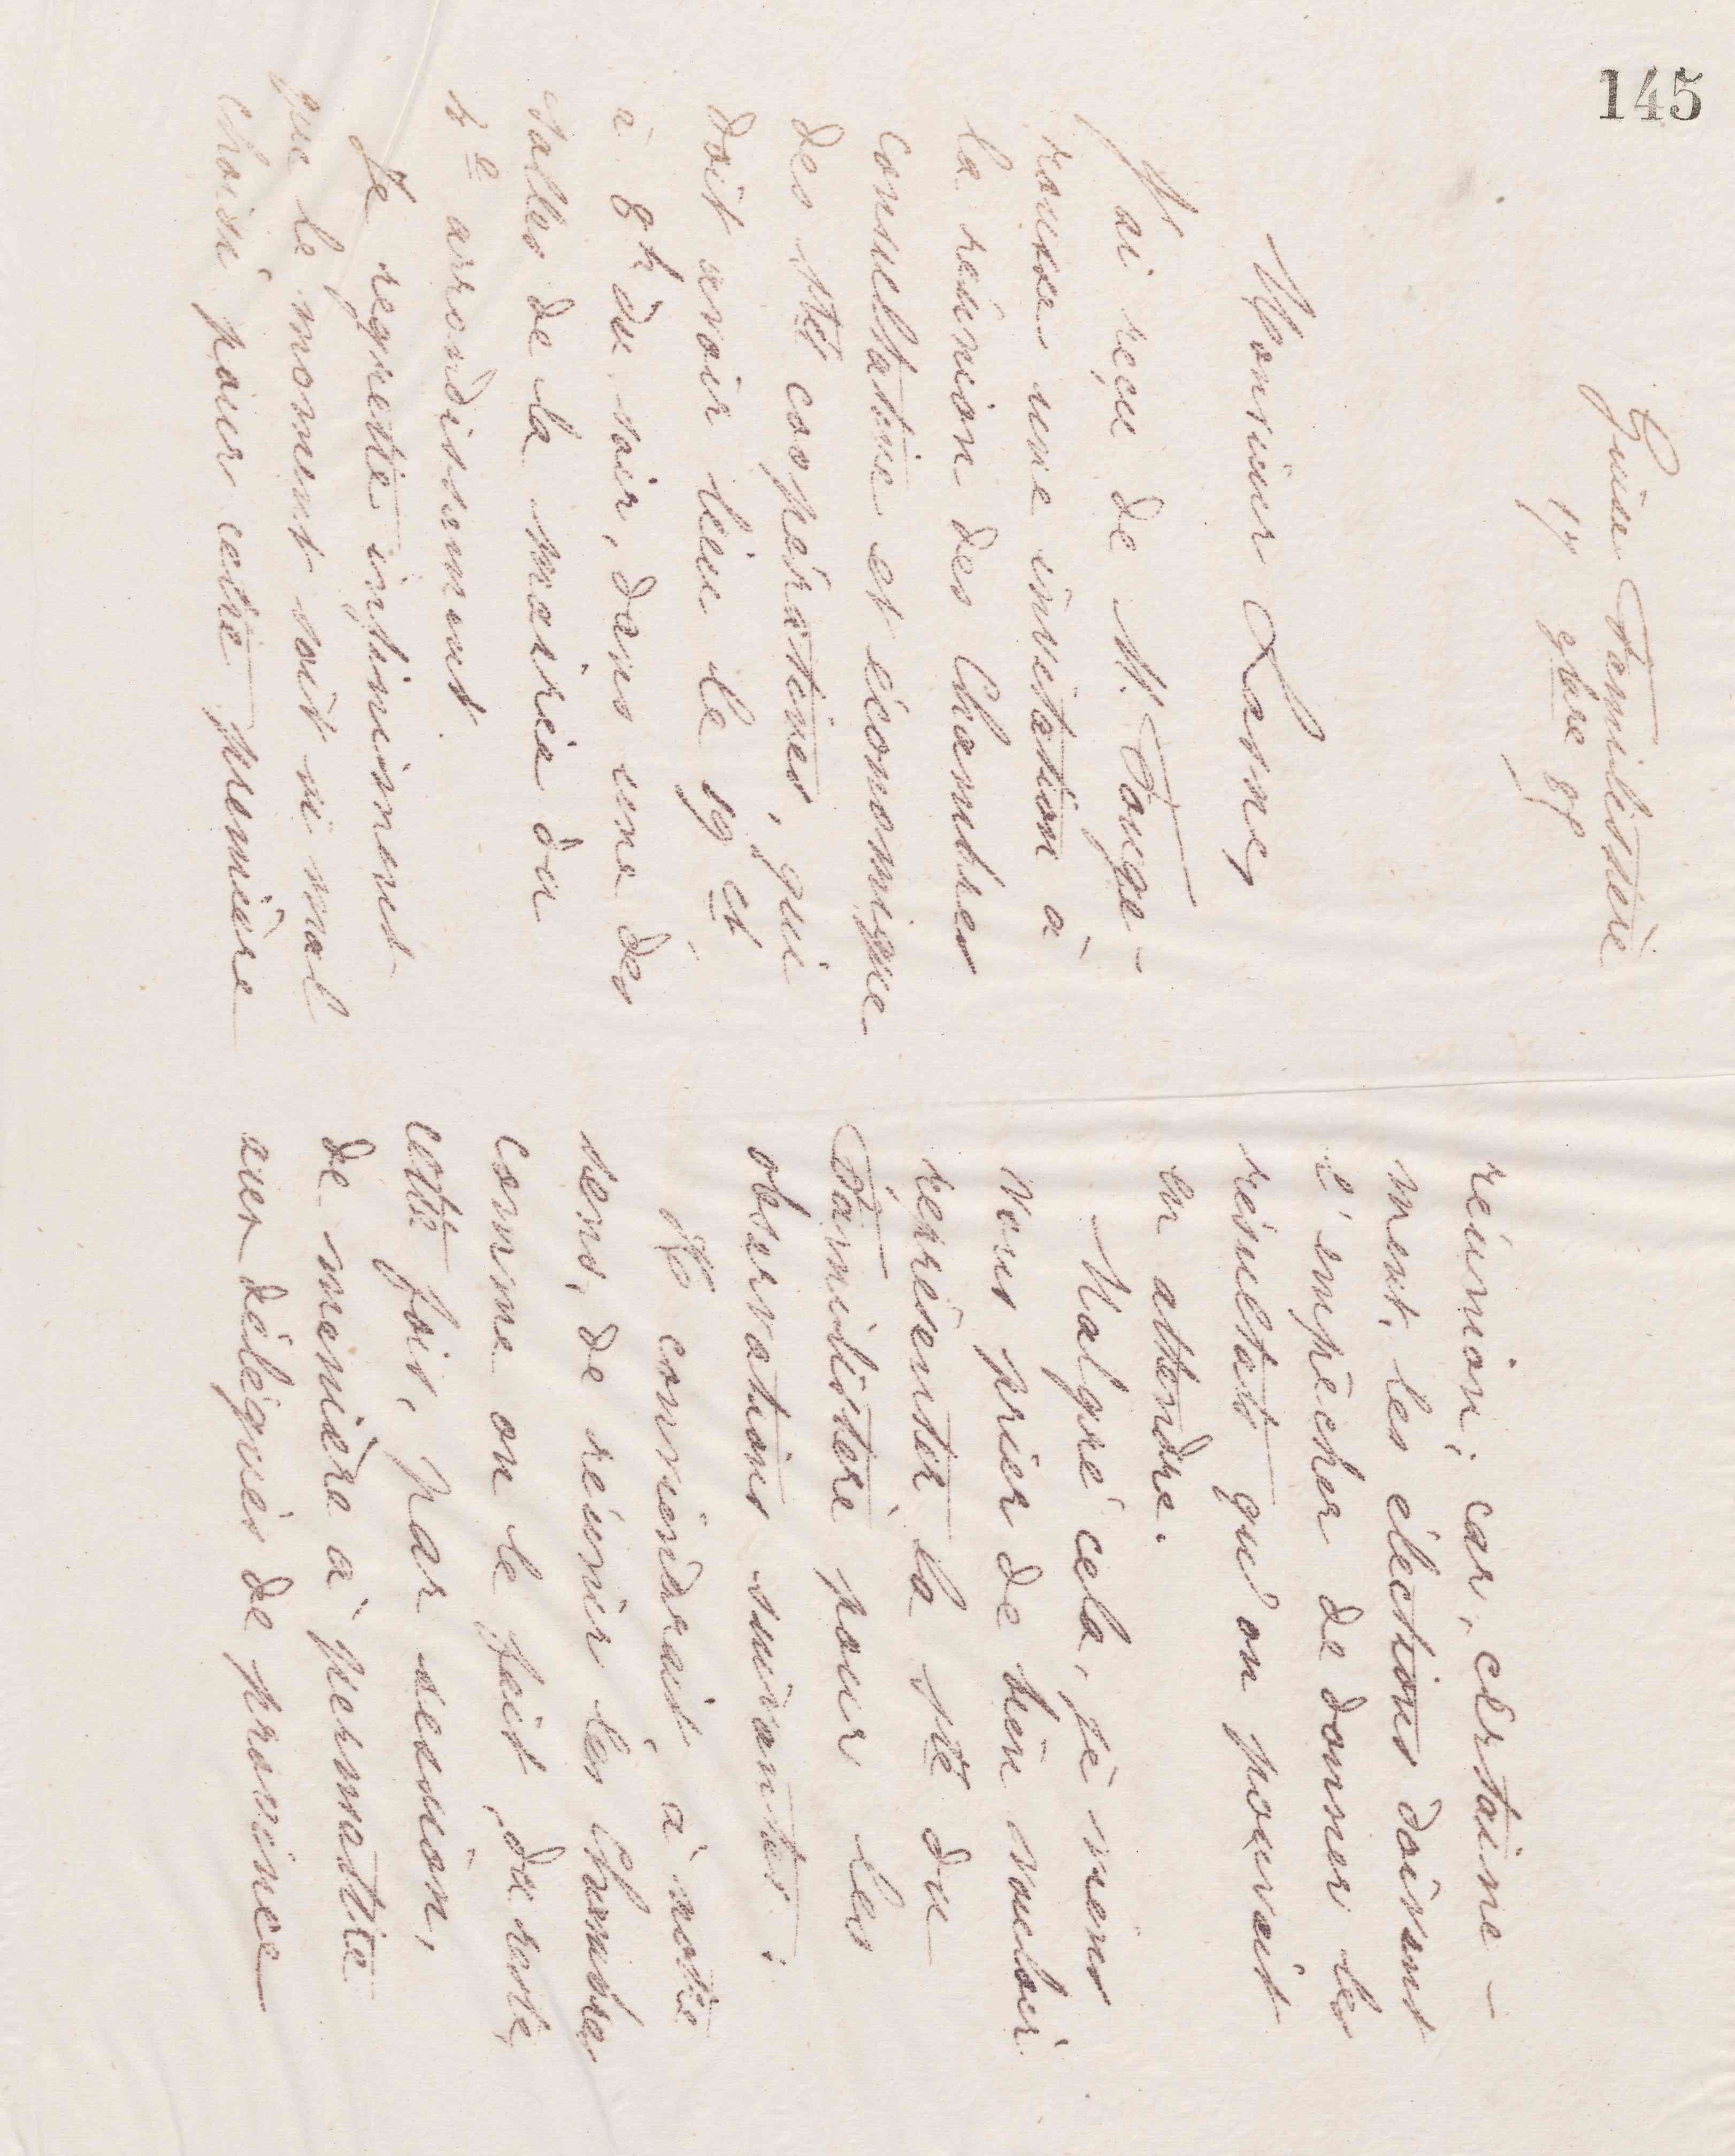 145
Guise Familistère
17 9bre 87
Monsieur Larue,
J'ai reçu de M. Fouge-
rousse une invitation à
la réunion des Chambres
consultative et économique
des Stés coopératives, qui
doit avoir lieu le 19 ct
à 8h du soir, dans une des
salles de la mairie du
1e arrondissement.
Je regrette infiniment
que le moment soit si mal
choisi pour cette première
réunion; car, certaine-
ment, les élections doivent
l'empêcher de donner les
résultats qu'on pouvait
en attendre.
Malgré cela, je viens
vous prier de bien vouloir
représenter la Sté du
Familistère pour les
observations suivantes:
Il conviendrait, à notre
sens, de réunir les Chambres
comme on le fait, du reste,
cette fois, par session,
de manière à permettre
aux délégués de province